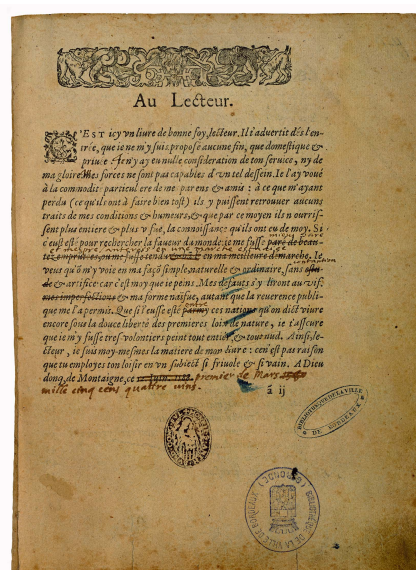 Au Lecteur.
C'EST icy vn liure de bonne foy, lecteur. Il t'aduertit dés l'en-
trée, que ie ne m'y suis proposé aucune fin, que domestique &
priuée. Ie n'y ay eu nulle consideration de ton seruice, ny de
ma gloire. Mes forces ne sont pas capables d'vn tel dessein. Ie l'ay voüé
à la commodité particuliere de mes parens & amis : à ce que m'ayant
perdu (ce qu'ils ont à faire bien tost) ils y puissent retrouuer aucuns
traits de mes conditions & humeurs, & que par ce moyen ils nourris-
sent plus entiere & plus vifue, la connoissance qu'ils ont eu de moy. Si
mieus paré
c'eust esté pour rechercher la faueur du monde, ie me fusse paré de beau-
et me
en une marche
tez empruntées, ou me fusse tendu en ma meilleure demarche. Ie
veus qu'on m'y voie en ma façõ simple, naturelle & ordinaire, sans
contantion
& artifice : car c'est moy que ie peins. Mes defauts s'y liront au vif,
mes imperfections & ma forme naïfue, autant que la reuerence publi-
entre
que me l'a permis. Que si i'eusse esté parmy ces nations qu'on dict viure
encore sous la douce liberté des premieres loix de nature, ie t'asseure
que ie m'y fusse tres-volontiers peint tout entier, & tout nud. Ainsi, le-
cteur, ie suis moy-mesmes la matiere de mon liure : ce n'est pas raison
que tu employes ton loisir en vn subiect si friuole & si vain. A Dieu
donq, de Montaigne, ce premier de Mars
mille cinq cens quattre vins.
ã ij
BIBLIOTHEQUE DE LA VILLE
DE BORDEAUX